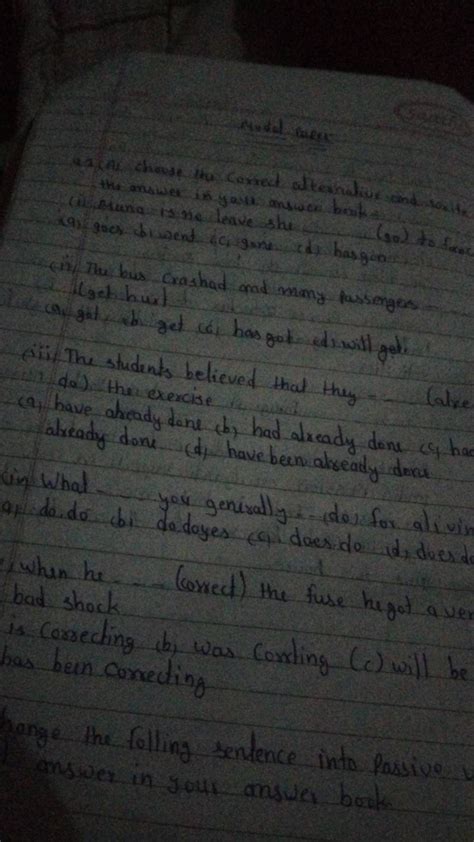 Model Paper
(A) choose the Correct alternative and
the answer in your answer book.
(i) Muna is ne leave she ___ (go) to
(a) goes (b) went (c) gone (d) hasgon
(ii) The bus Crashad and many Passengers ---
(get hurt)
(a) got (b) get (c) has got (d) will get
(iii) The students believed that they --- (alre
do) the exercise
(a) have already done (b) had already done (c) had
already done (d) have been already done
(iv) What --- you generally --- (do) for a living
a) do.do (b) do.does (c) does.do (d) does.do
when he --- (correct) the fuse he got a ver
bad shock
is Correcting (b) was Correcting (c) will be
has been Correcting
change the folling sentence into Passive
answer in your answer book